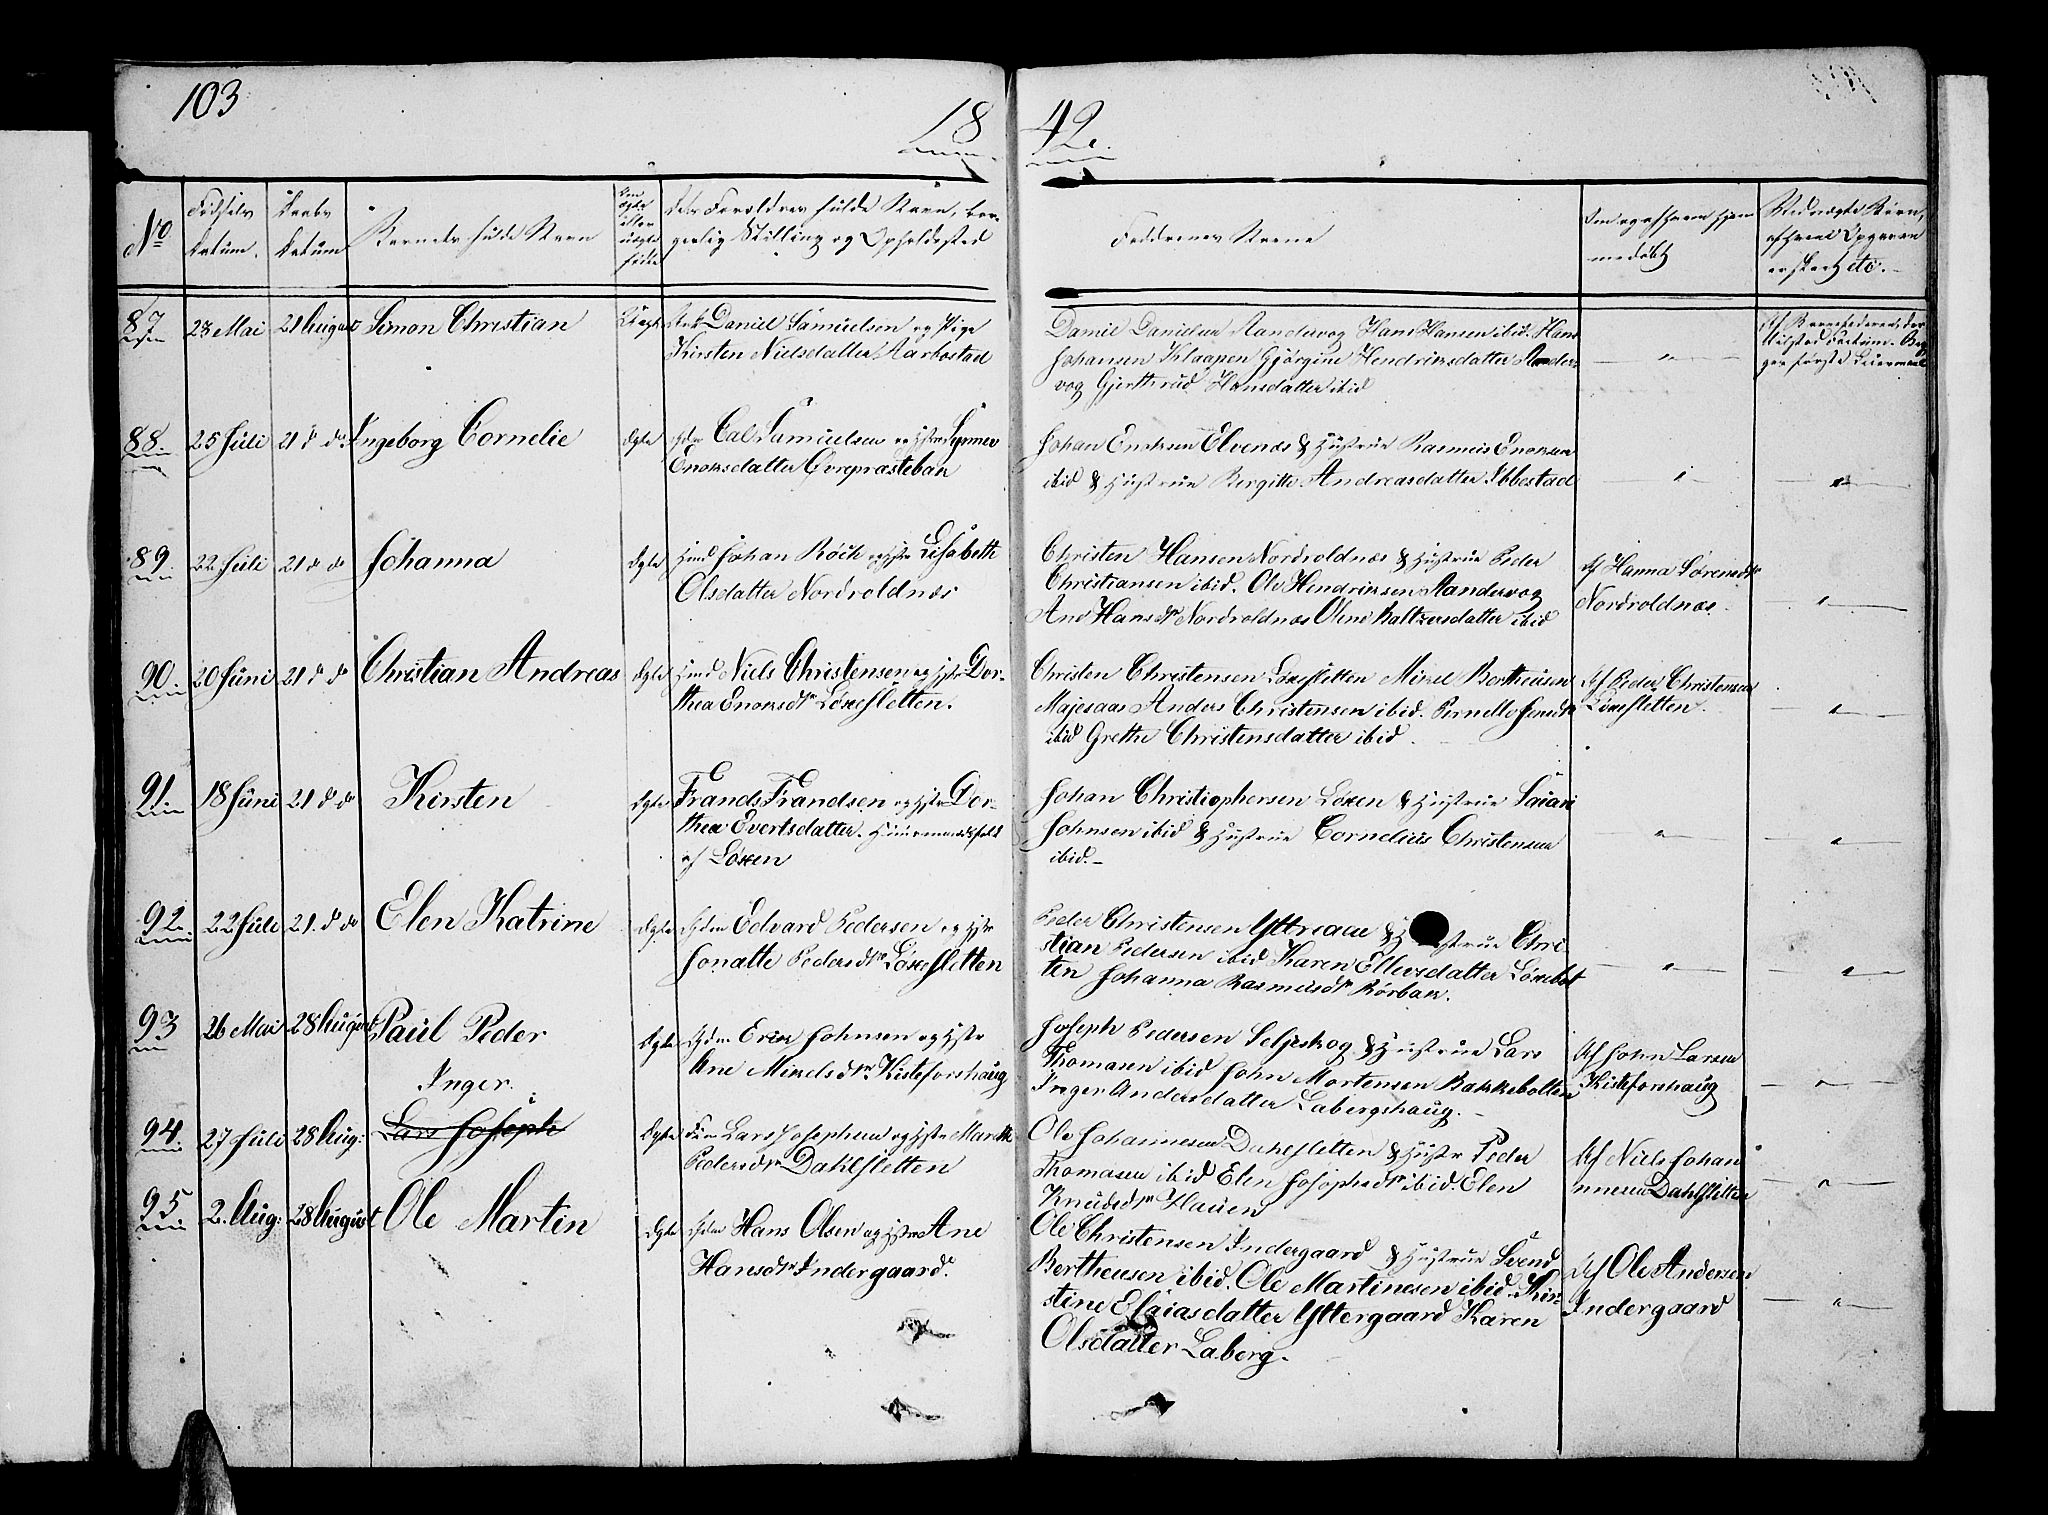 103
18 42.
No
Fødsels
datum.
Daabs
datum
Barnets fulde Navn
Om
ægte
eller
uægte
født
dets Forældres fulde Navn, bor-
gerlig Stilling og Opholdssted
Faddernes Navne
Om og af hvem hjem-
medøbt
Ved uægte Børn,
af hvem Opgaven
er skeet etc.
87 23 Mai 21 August Simon Christian Uægte Daniel Samuelsen og Pige
Kirsten Nielsdatter Aarbostad
Daniel Danielsen Aandervog Hans Hansen ibid. Hans
Johansen Klaapen Gjørgine Hendriksdatter Aander-
vog Gjerthrud Hansdatter ibid
Af Barnefaderen
88. 25 Juli 21 d do Ingeborg Cornelie Ægte Samuelsen og Hstr Synnev
Enoksdatter Øvrepræstebak
Johan Enoksen Elvenæs & Hustrue Rasmus Enoksen
ibid & Hustrue Bergitte Andreasdatter Ibbestad
89. 22 Juli 21 d do Johanna Ægte Huusmd Johan og Hstr Elisabeth
Olsdatter Nordroldnæs
Christen Hansen Nordroldnæs & Hustrue Peder
Christiansen ibid. Ole Hendriksen Aandervog
Ane Hansdr Nordroldnæs Oline Baltzersdatter ibid
Af Hanna Sørensdtr
Nordroldnæs.
90. 20 Juni 21 d do Christian Andreas Ægte Huusmd Niels Christensen og Hstr Dor-
thea Enoksdr Løxesletten.
Christen Christensen Løxesletten Mikel Bertheusen
Majesaas Anders Christensen ibid. Pernelle
ibid Grethe Christensdatter ibid
Af Peder Christensen
Løxesletten.
91. 18 Juni 21 d do Kirsten Ægte Frands Frandsen og Hstr Dor-
thea Evertsdatter. Huusmandsfolk
af Løxen
Johan Christophersen Løxen & Hustrue
Johnsen ibid & Hustrue Cornelius Christensen
ibid.
92. 22 Juli 21. d do Elen Katrine Ægte Edvard Pedersen og Hstr
Jonatte Pedersdr Løxesletten
Peder Christensen & Hustrue Chri-
stian Pedersen ibid Karen Ellersdatter Løxebot-
ten Johanna Rasmusdr Rørbak.
93 26 Mai 28 August Paul Peder Ægte Erik Johnsen og Hstr
Ane Mikelsdr Kisteforshaug
Joseph Pedersen Seljeskog & Hustrue Lars
Thomasen ibid John Mortensen Bakkebotten
Inger Andersdatter Labergshaug.
Af John Larsen
Kisteforshaug
94. 27 Juli 28 Aug: Inger.
Lars Joseph
Ægte Lars Josephsen og Hstr Marith
Pedersdr Dahlsletten
Ole Johannesen Dahlsletten & Hustr Peder
Thomasen ibid Elen Josephsdr ibid. Elen
Knudsdr Hauen
Af Niels Johan-
nesen Dahlsletten
95 2. Aug: 28 August Ole Martin Ægte Hans Olsen og Hstr Ane
Hansdr Indergaard.
Ole Christensen Indergaard & Hustrue Svend
Bertheusen ibid. Ole Martinesen ibid. Kir-
stine Esaiasdatter Yttergaard Karen
Olsdatter Laberg.
Af Ole Andersen
Indergaard